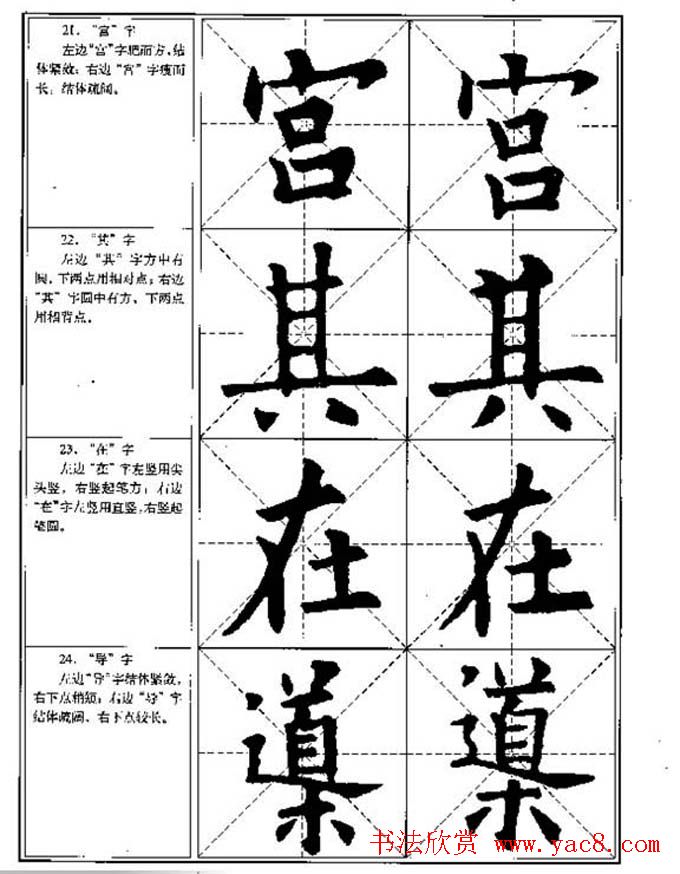 21. “宫” 字
左边“宫”字肥而方,结
体紧敛；右边 “宫” 字瘦而
长，结体疏阔。
宫 宫
22. “其” 字
左边 “其” 字方中有
圆，下两点用相对点；右边
“其” 字圆中有方，下两点
用相背点。
其 其
23. “在” 字
左边“在”字左竖用尖
头竖，右竖起笔方；右边
“在”字左竖用直竖，右竖起
笔圆。
在 在
24. “导” 字
左边“导”字结体紧敛，
右下点稍短；右边 “导” 字
结体疏阔，右下点较长。
书法欣赏 www.yac8.com